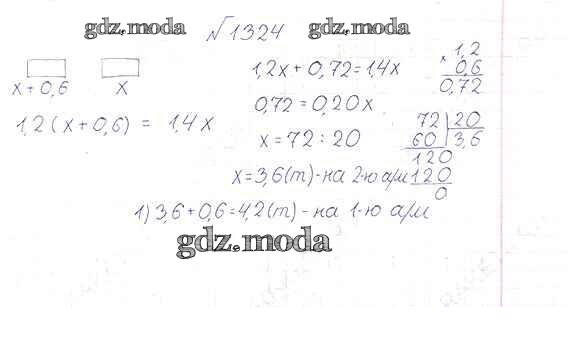 gdz.moda №1324 gdz.moda
x+0,6 x
1,2(x+0,6) = 1,4x
1,2x+0,72=1,4x
0,72=0,20x
x=72:20
x=3,6(т)-на 2-ю а/м
× 1,2
0,6
0,72
72 20
60 3,6
120
120
0
1) 3,6+0,6=4,2(т)-на 1-ю а/м
gdz.moda